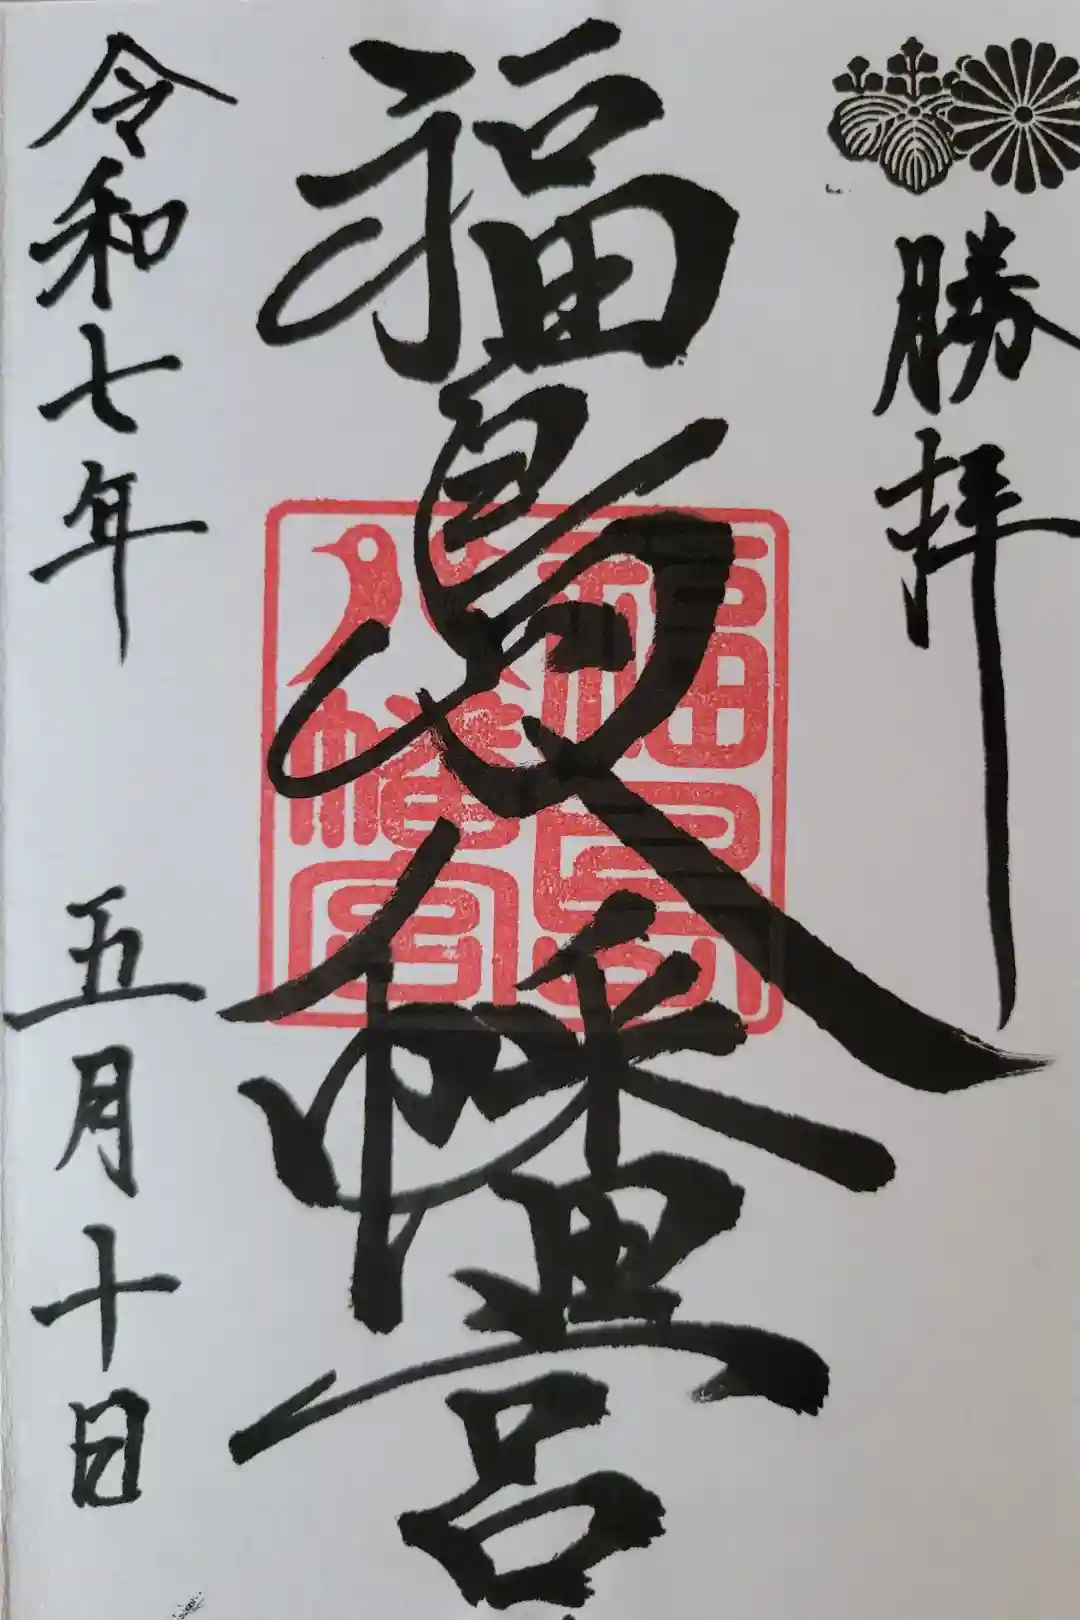 勝拝
福島八幡宮
福島八幡宮
令和七年 五月十日